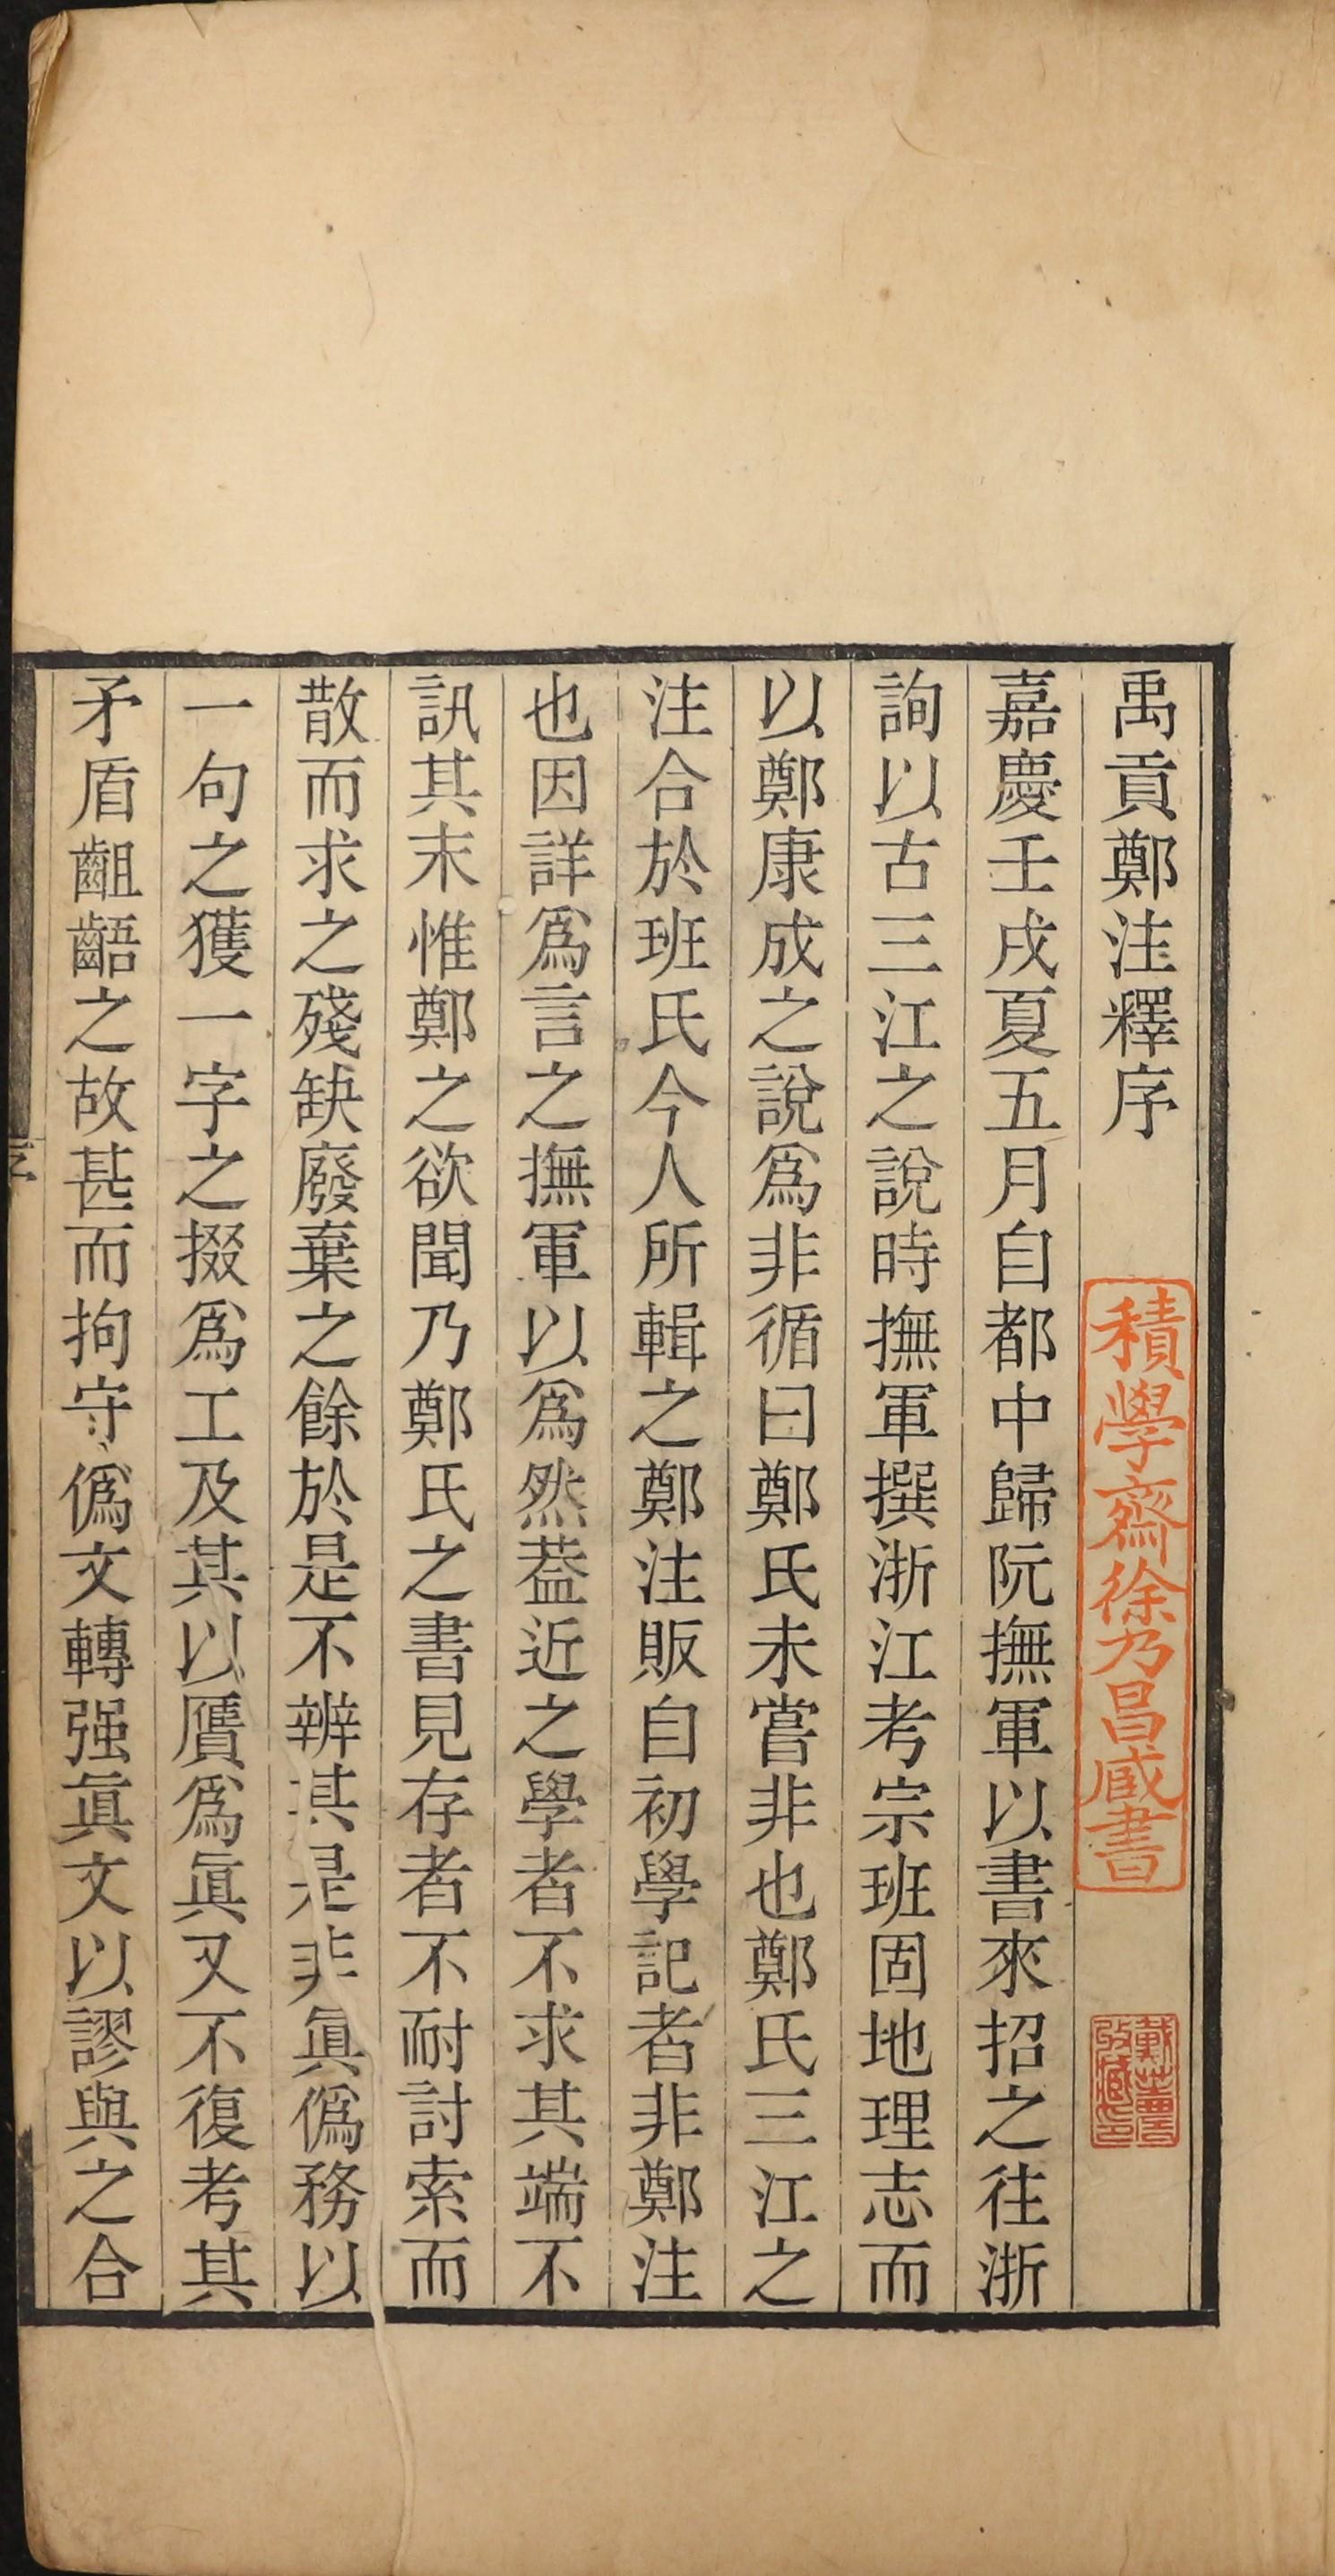 禹貢鄭注釋序
積學齋徐乃昌藏書
嘉慶壬戌夏五月自都中歸阮撫軍以書來招之往浙
詢以古三江之說時撫軍撰浙江考宗班固地理志而
以鄭康成之說爲非循曰鄭氏未嘗非也鄭氏三江之
注合於班氏今人所輯之鄭注販自初學記者非鄭注
也因詳爲言之撫軍以爲然葢近之學者不求其端不
訊其末惟鄭之欲聞乃鄭氏之書見存者不耐討索而
散而求之殘缺廢棄之餘於是不辨其是非眞僞務以
一句之獲一字之掇爲工及其以贗爲眞又不復考其
矛盾齟齬之故甚而拘守僞文轉强眞文以謬與之合